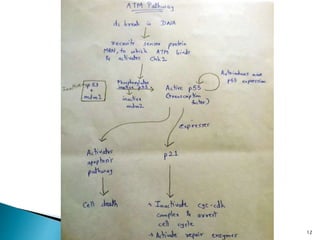 ATM Pathway
ds break in DNA
recruits sensor protein
MRN, to which ATM binds
& activates Chk2
Inactive p53
+
mdm2
Phosphorylates
inactive p53
inactive
mdm2
Active p53
(transcription
factor)
Autoinduces more
p53 expression
expresses
Activates
apoptosis
pathway
p21
Cell death
→ Inactivate cyc-cdk
complex & arrest
cell cycle
→ Activate repair enzymes
12